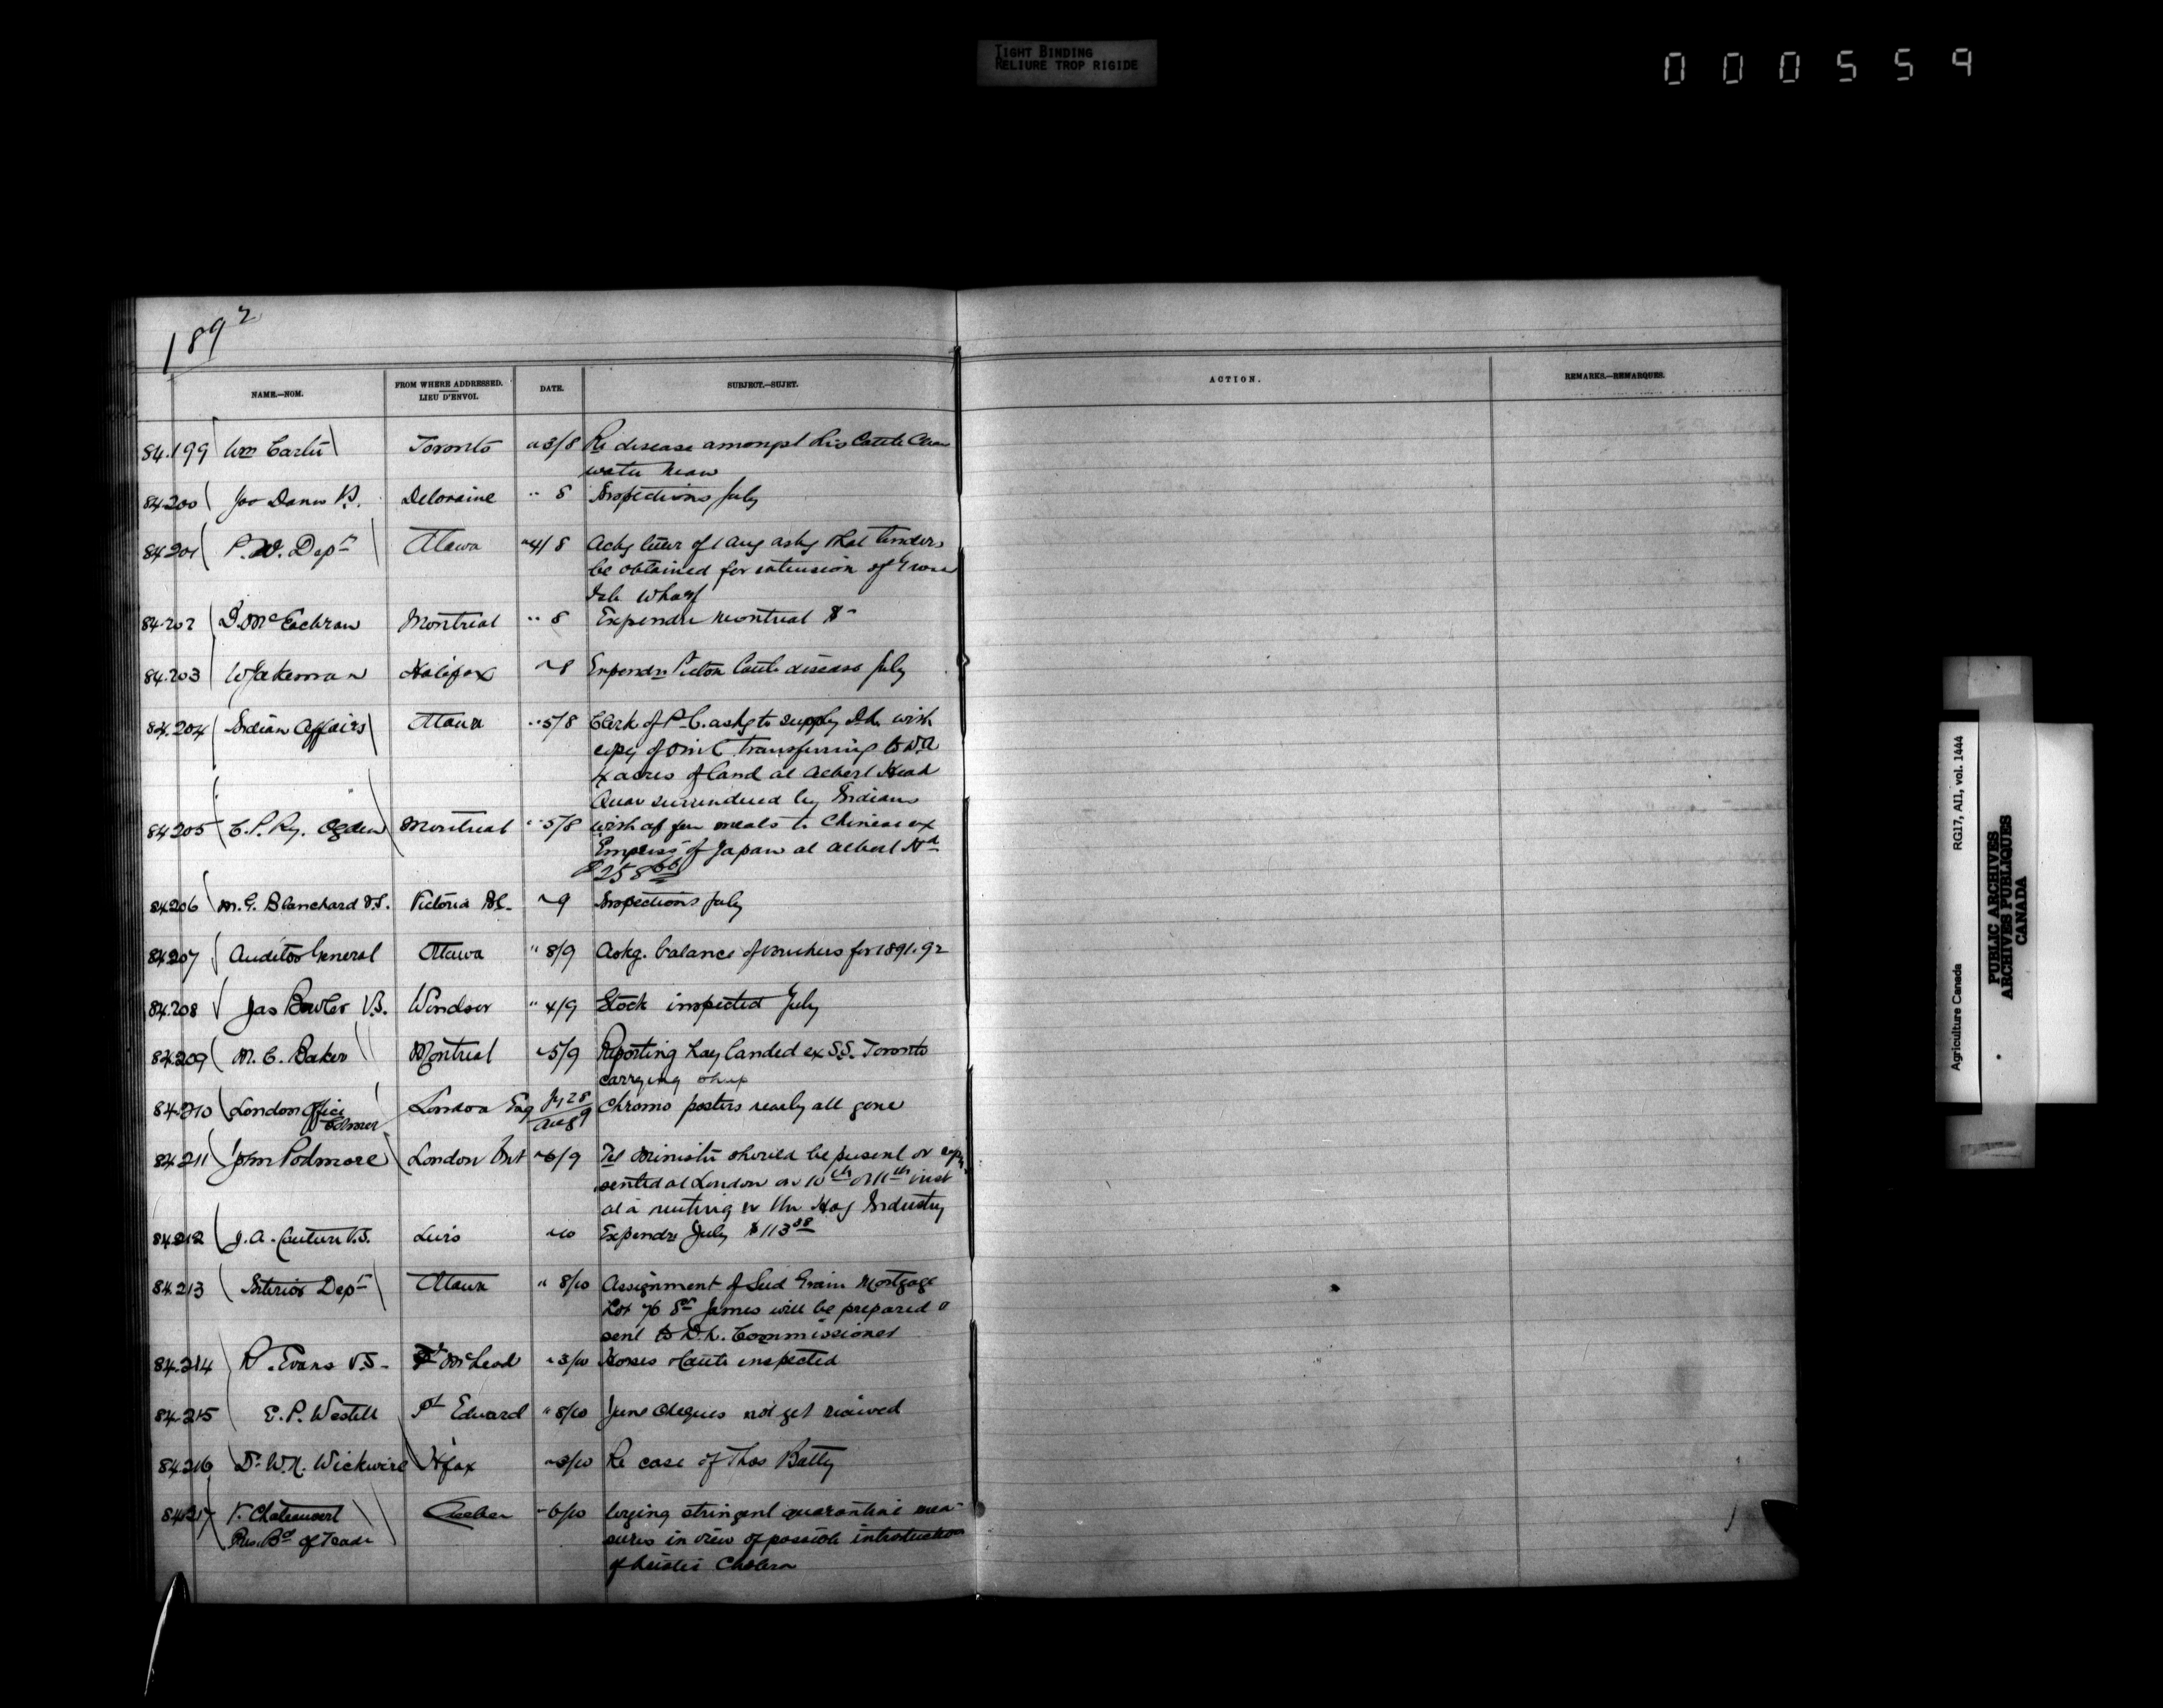 TIGHT BINDING
RELIURE TROP RIGIDE
000559
1892
NAME.—NOM.
FROM WHERE ADDRESSED.
LIEU D'ENVOI.
DATE.
SUBJECT.—SUJET.
ACTION.
REMARKS.—REMARQUES.
84.199 Wm Carlii Toronto " 3/8 Re disease amongst his Cattle Clear
water
84200 Deloraine " 8 Inspections July
84201 P.W. Dept Ottawa " 4/8 Ackg letter of 1 Aug askg that tenders
be obtained for extension of Grosse
Isle Wharf
84.202 D. McEachran Montreal " 8 Expendre Montreal $
84.203 W Jakeman Halifax " 8 Expendre Pictou Cattle disease July
84.204 Indian Affairs Ottawa " 5/8 Clerk of P.C. askg to supply with
copy of O in C transferring to D.A
4 acres of land at Albert Head
Quar surrendered by Indians
84205 C.P. Ry. Ogden Montreal " 5/8 for meals to Chinese ex
"Empress" of Japan at Albert Hd
$258
84206 M.G. Blanchard V.S. Victoria BC. " 9 Inspections July
84207 Auditor General Ottawa " 8/9 Askg. balance of vouchers for 1891.92
84.208 Jas V.S. Windsor " 4/9 Stock inspected July
84209 M.C. Baker Montreal " 5/9 Reporting hay landed ex S.S. Toronto
carrying sheep
84210 London Office London Eng Jy 28 Chromo posters nearly all gone
Aug 9
84211 John Podmore London Ont " 6/9 Tel Minister should be present or repre
sented at London on 10th or 11th inst
at a meeting re the Hog Industry
84212 J.A. Couture V.S. Levis " 10 Expendre July $113
84213 Interior Dept Ottawa " 8/10 Assignment of Seed Grain Mortgage
Lot 76 St James will be prepared &
sent to D.L. Commissioner
84.214 R. Evans V.S. Ft McLeod " 3/10 Horses & Cattle inspected
84215 E.P. Westell Pt Edward " 8/10 June cheques not yet received
84216 Dr W.N. Wickwire Hfax " 3/10 Re case of Thos Batty
84217 V. Chateauvert Quebec " 6/10 Urging stringent quarantine mea-
Pres. Bd of Trade
sures in view of possible introduction
of Asiatic Cholera
Agriculture Canada RG17, AII, vol. 1444
PUBLIC ARCHIVES
ARCHIVES PUBLIQUES
CANADA